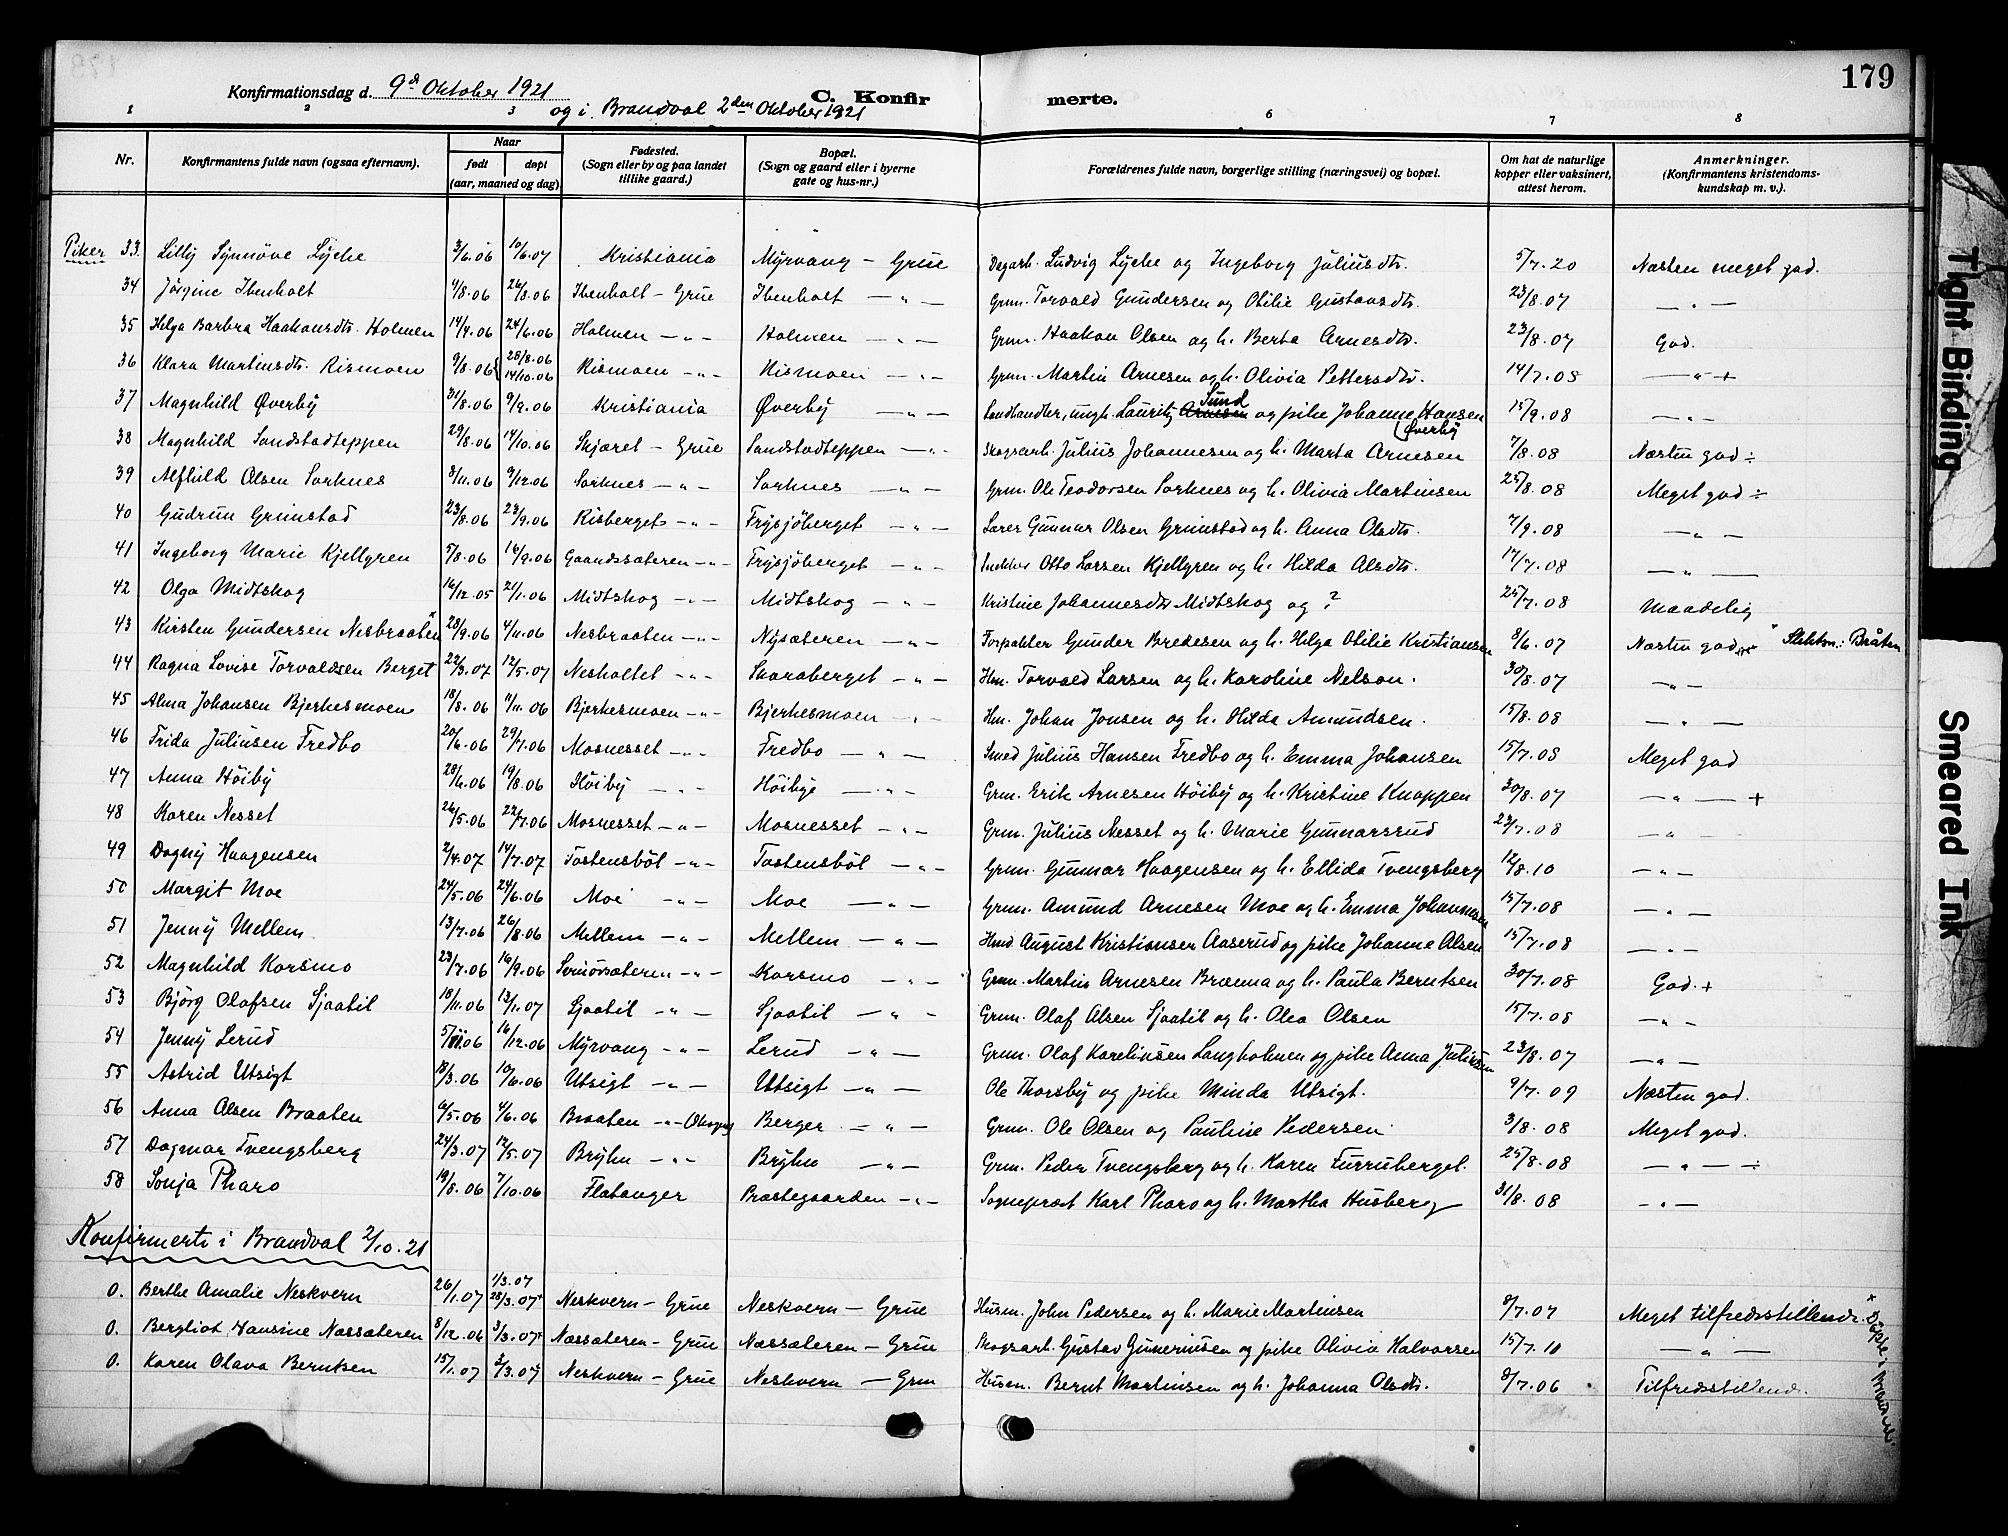 179
Konfirmationsdag d. 9de Oktober 1921
og i Brandval 2den Oktober 1921
C. Konfirmerte.
1 2 3 6 7 8
Nr. Konfirmantens fulde navn (ogsaa efternavn). Naar født døpt (aar, maaned og dag) Fødested. (Sogn eller by og paa landet tillike gaard.) Bopæl. (Sogn og gaard eller i byerne gate og hus-nr.) Forældrenes fulde navn, borgerlige stilling (næringsvei) og bopæl. Om hat de naturlige kopper eller vaksinert, attest herom. Anmerkninger. (Konfirmantens kristendomskundskap m. v.).
Piker 33. Lilly Synnöve Lyche 3/6.06 10/6.07 Kristiania Myrvang – Grue Dagarb. Ludvig Lyche og Ingeborg Juliusdtr. 5/7.20 Næsten meget god.
34 Jörgine Ibenholt 4/8.06 26/8.06 Ibenholt – Grue Ibenholt — „ — Grm. Torvald Gundersen og Otilie Gustavsdtr. 23/8.07 — „ —
35 Helga Barbra Haakonsdtr. Holmen 14/4.06 24/6.06 Holmen – „ – Holmen — „ — Grm. Haakon Olsen og h. Berta Arnesdtr. 23/8.07 God.
36 Klara Martinsdtr. Rismoen 9/8.06 28/8.06 14/10.06 Rismoen – „ – Rismoen — „ — Grm. Martin Arnesen og h. Olivia Pettersdtr. 14/7.08 — „ +
37 Magnhild Øverby 31/8.06 9/9.06 Kristiania Øverby — „ — Landhandler, ungk. Lauritz Arnesen Sund og pike Johanne Hansen (Øverby 15/9.08 — „ —
38 Magnhild Sandstadteppen 29/8.06 14/10.06 Skjæret – Grue Sandstadteppen — „ — Skogsarb. Julius Johannesen og h. Marta Arnesen 7/8.08 Næsten god ÷
39 Alfhild Olsen Sorknes 3/11.06 9/12.06 Sorknes – „ – Sorknes — „ — Grm. Ole Teodorsen Sorknes og h. Olivia Martinsen 25/8.08 Meget god ÷
40 Gudrun Grimstad 23/8.06 23/9.06 Risberget – „ – Frysjöberget — „ — Lærer Gunnar Olsen Grimstad og h. Anna Olsdtr. 7/9.08 — „ —
41 Ingeborg Marie Kjellgren 5/8.06 16/9.06 Gaardssæteren – „ – Frysjöberget — „ — Otto Larsen Kjellgren og h. Hilda Olsdtr. 17/7.08 — „ —
42 Olga Midtskog 16/12.05 21/1.06 Midtskog – „ – Midtskog — „ — Kristine Johannesdtr. Midtskog og ? 25/7.08 Maadelig
43 Kirsten Gundersen Nesbraaten 28/9.06 4/11.06 Nesbraaten – „ – Nysæteren — „ — Forpakter Gunder Bredesen og h. Helga Otilie Kristiansen 8/6.07 Næsten god Slektsn.: Bråten
44 Ragna Lovise Torvaldsen Berget 22/3.07 12/5.07 Nesholtet – „ – Skaraberget — „ — Hm. Torvald Larsen og h. Karoline Nelson. 30/8.07 — „ —
45 Alma Johansen Bjerkesmoen 18/8.06 11/11.06 Bjerkesmoen – „ – Bjerkesmoen — „ — Hm. Johan Jonsen og h. Hilda Amundsen. 15/8.08 — „ —
46 Frida Juliusen Fredbo 20/6.06 29/7.06 Mosnesset – „ – Fredbo — „ — Smed Julius Hansen Fredbo og h. Emma Johansen 15/7.08 Meget god
47 Anna Höiby 28/6.06 19/8.06 Höiby – „ – Höibye — „ — Grm. Erik Arnesen Höiby og h. Kristine Knappen 30/8.07 — „ — +
48 Karen Nesset 26/5.06 22/7.06 Mosnesset – „ – Mosnesset — „ — Grm. Julius Nesset og h. Marie Gunnarsrud 23/7.08 — „ —
49 Dagny Haagensen 2/4.07 14/7.07 Tostensböl – „ – Tostensböl — „ — Grm. Gunnar Haagensen og h. Ellida Tvengsberg 12/8.10 — „ —
50 Margit Moe 24/5.06 24/6.06 Moe – „ – Moe — „ — Grm. Amund Arnesen Moe og h. Emma Johannesen 15/7.08 — „ —
51 Jenny Mellem 13/7.06 26/8.06 Mellem – „ – Mellem — „ — August Kristiansen Aaserud og pike Johanne Olsen 15/7.08 — „ —
52 Magnhild Korsmo 23/7.06 16/9.06 – „ – Korsmo — „ — Grm. Martin Arnesen Brænna og h. Paula Berntsen 30/7.08 God. +
53 Björg Olafsen Sjaatil 18/11.06 13/1.07 Sjaatil – „ – Sjaatil — „ — Grm. Olaf Olsen Sjaatil og h. Olea Olsen 15/7.08 — „ —
54 Jenny Lerud 5/11.06 16/12.06 Myrvang – „ – Lerud — „ — Grm. Olaf Karelinsen Langholmen og pike Anna Juliusen 23/8.07 — „ —
55 Astrid Utsigt 18/3.06 10/6.06 Utsigt – „ – Utsigt — „ — Ole Thorsby og pike Minda Utsigt. 9/7.09 Næsten god.
56 Anna Olsen Braaten 6/5.06 4/6.06 Braaten – „ – Berger — „ — Grm. Ole Olsen og Pauline Pedersen. 3/8.08 Meget god.
57 Dagmar Tvengsberg 24/3.07 12/5.07 Bryhn – „ – Bryhn — „ — Grm. Peder Tvengsberg og h. Karen Furruberget. 25/8.08 — „ — ÷
58 Sonja Pharo 19/8.06 7/10.06 Flatanger Præstegaarden – „ – Sogneprest Karl Pharo og h. Martha Husberg 31/8.08 — „ —
Konfirmerte i Brandval 2/10.21
0. Berthe Amalie Neskvern 26/1.07 1/3.07 28/3.07+ Neskvern – Grue Neskvern – Grue Husm. John Pedersen og h. Marie Martinsen 9/7.07 Meget tilfredsstillende.
0. Bergliot Hansine Næssæteren 8/12.06 3/3.07+ Næssæteren – Grue Næssæteren – Grue Skogsarb. Gustav Gunerinsen og pike Olivia Halvorsen 15/7.10 — „ —
0. Karen Olava Berntsen 15/1.07 3/3.07 Neskvern – Grue Neskvern – Grue Husm. Bernt Martinsen og h. Johanna Olsdtr. 9/7.06 Tilfredsstillende.
+ Döpt i Brandval.
Tight Binding
Smeared Ink